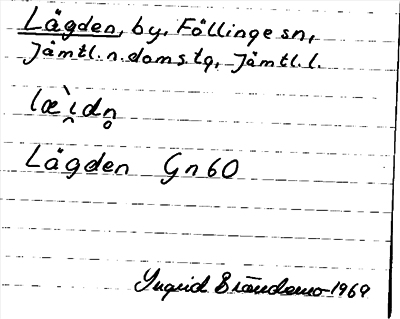 Lägden, by, Föllinge sn,
Jämtl. n. doms. tg, Jämtl. l.
læ̀i̯dn̥
Lägden Gn 60
Ingrid Brändemo 1969